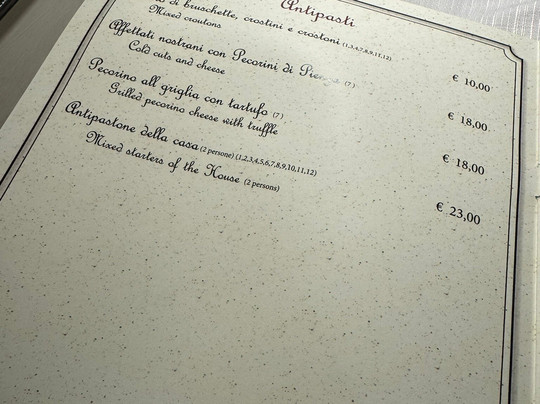 Antipasti
di bruschette, crostini e crostoni (1,3,4,7,8,9,11,12) € 10,00
Mixed croutons
Affettati nostrani con Pecorini di Pienza (7) € 18,00
Cold cuts and cheese
Pecorino all griglia con tartufo (7) € 18,00
Grilled pecorino cheese with truffle
Antipastone della casa (2 persone) (1,2,3,4,5,6,7,8,9,10,11,12) € 23,00
Mixed starters of the House (2 persons)